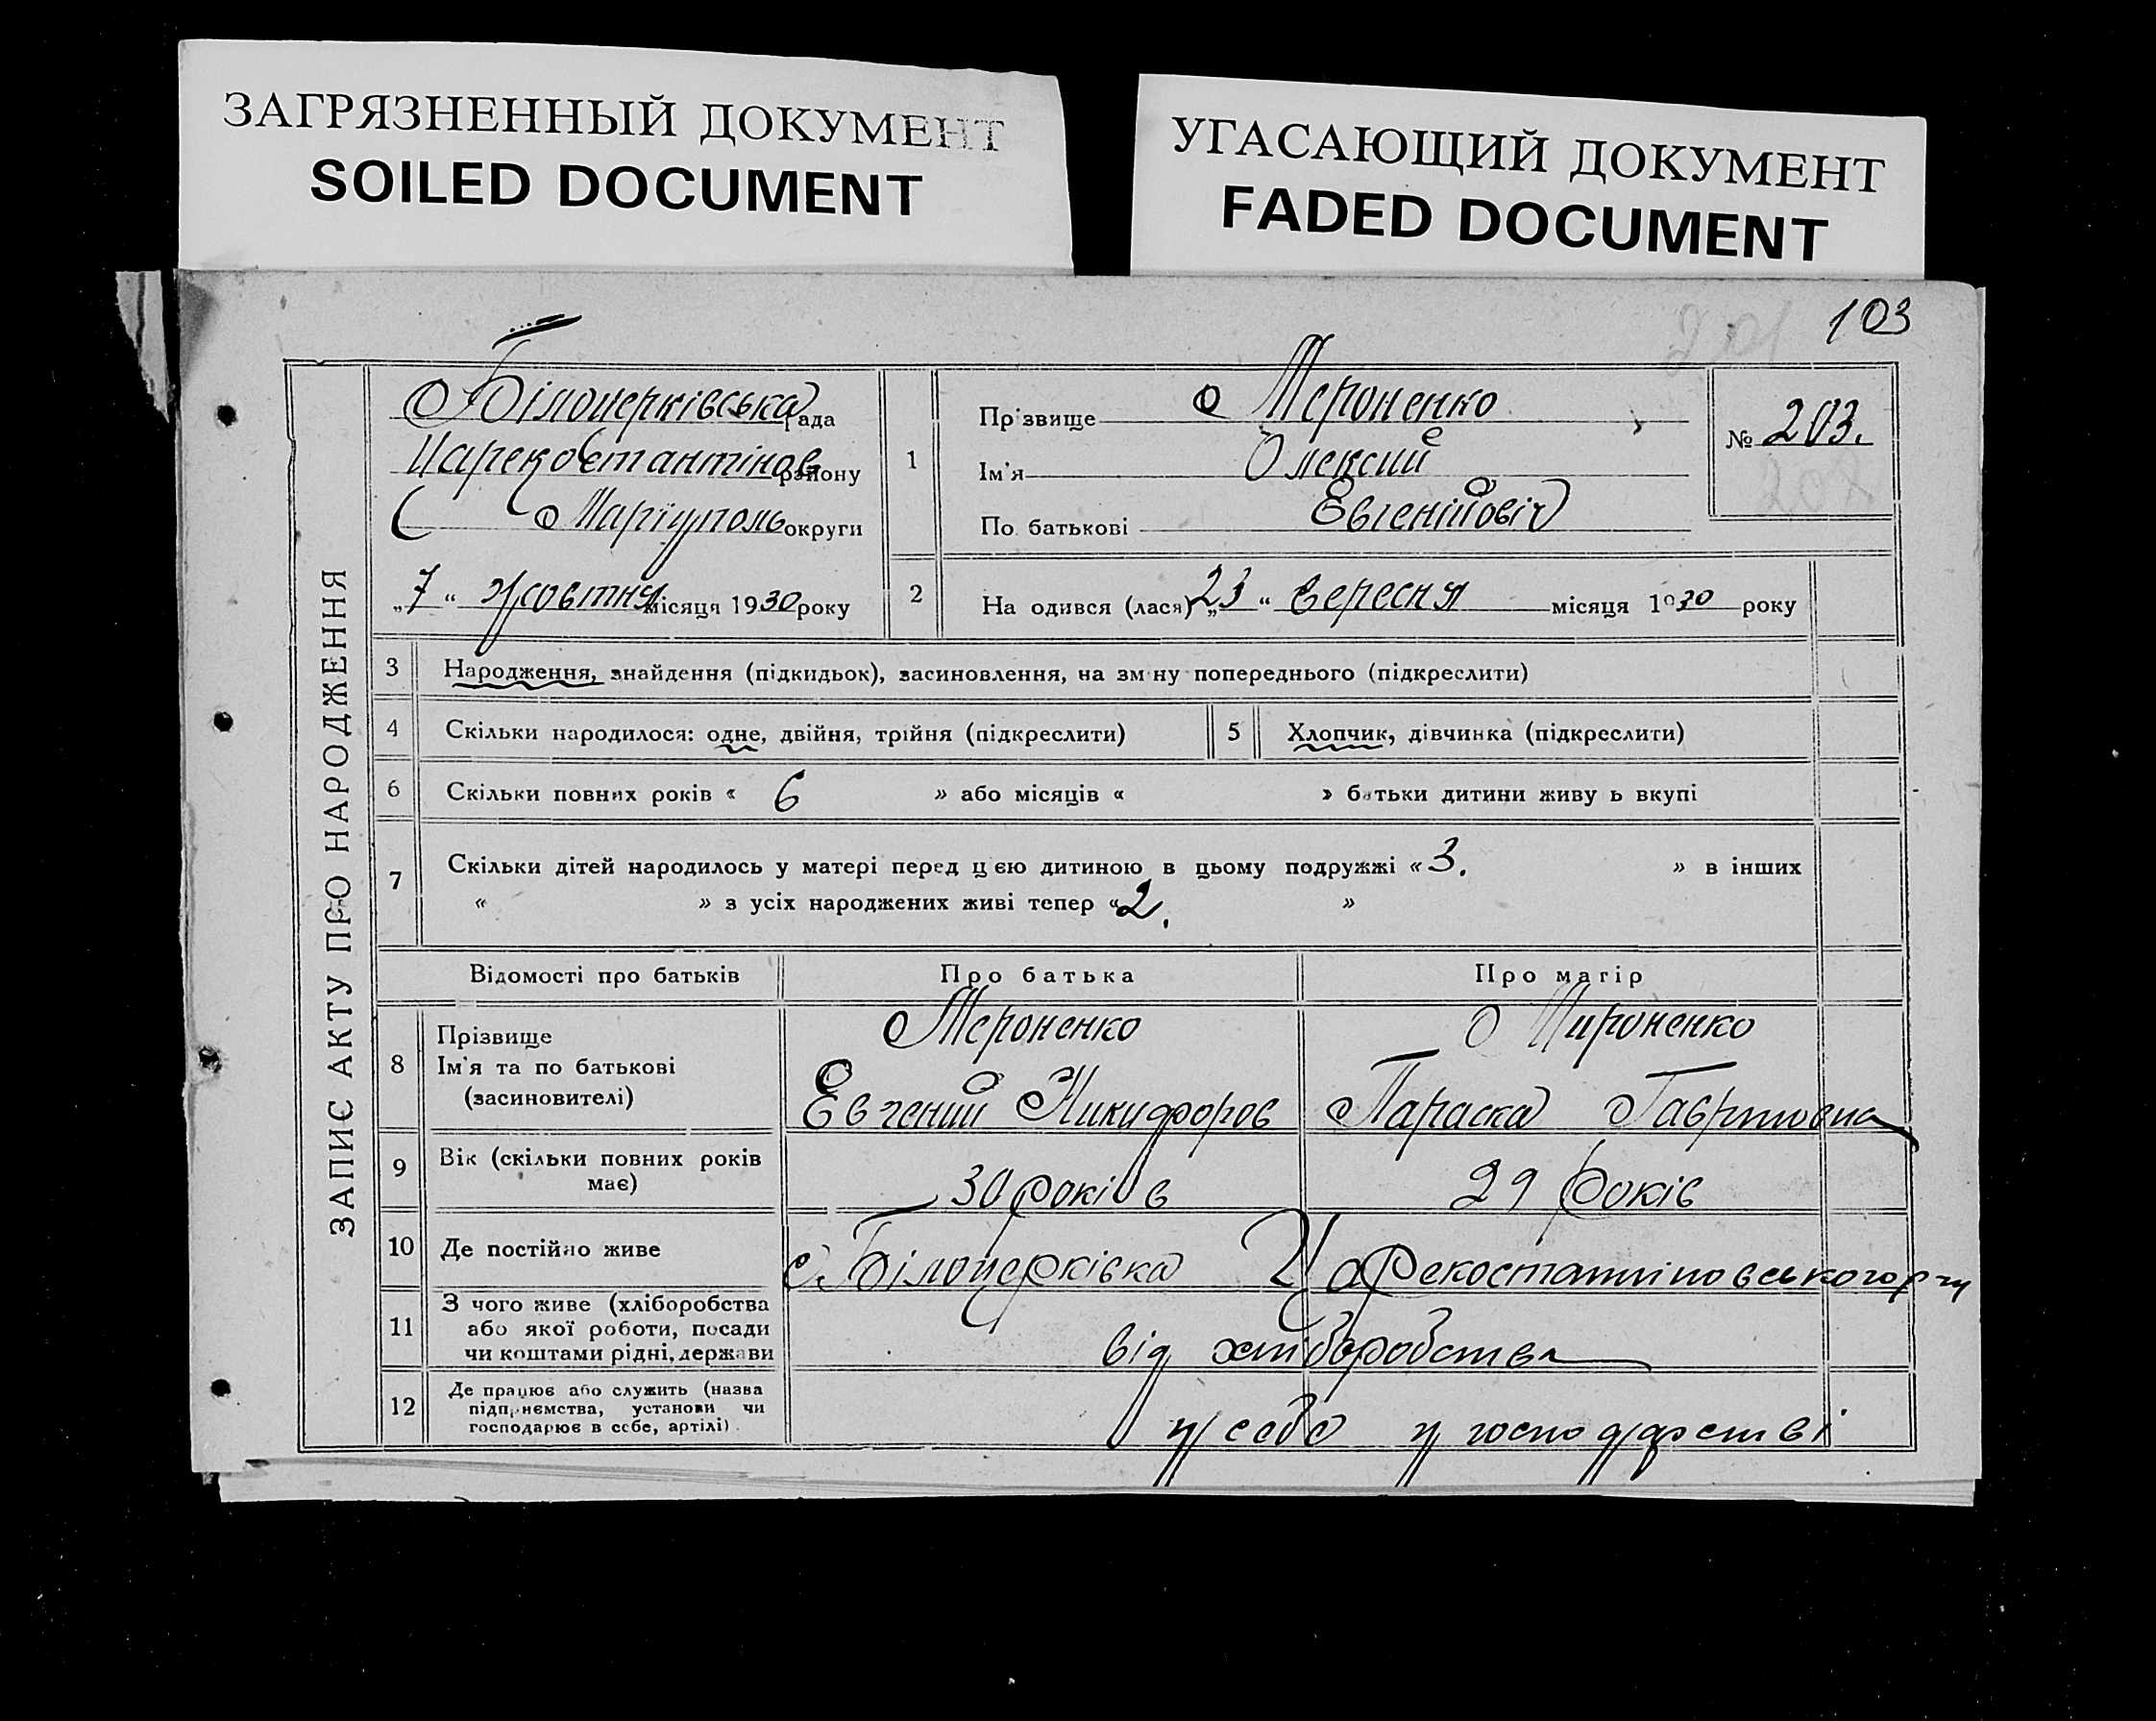 ЗАГРЯЗНЕННЫЙ ДОКУМЕНТ
SOILED DOCUMENT
УГАСАЮЩИЙ ДОКУМЕНТ
FADED DOCUMENT
103
ЗАПИС АКТУ ПРО НАРОДЖЕННЯ
Білоцерківська рада
Царекостантінов району
Маріуполь округи
„7“ жовтня місяця 1930 року
1
Прізвище Мероненко
Ім'я Олексий
По батькові Евгенійовіч
№ 203.
2
На одився (лася) „23“ вересня місяця 1930 року
3 Народження, знайдення (підкидьок), засиновлення, на зміну попереднього (підкреслити)
4 Скільки народилося: одне, двійня, трійня (підкреслити)
5 Хлопчик, дівчинка (підкреслити)
6 Скільки повних років « 6 » або місяців « » батьки дитини живу ь вкупі
7 Скільки дітей народилось у матері перед цією дитиною в цьому подружжі « 3. » в інших
« » з усіх народжених живі тепер « 2. »
Відомості про батьків Про батька Про матір
8 Прізвище Мероненко Мироненко
Ім'я та по батькові
(засиновителі) Евгений Никифоров Параска
9 Вік (скільки повних років
має) 30 років 29 років
10 Де постійно живе с. Білоцерківка Царекостантіновського р-ну
11 З чого живе (хліборобства
або якої роботи, посади
чи коштами рідні, держави від хліборобства
12 Де працює або служить (назва
підприємства, установи чи
господарює в себе, артілі). у себе у господарстві